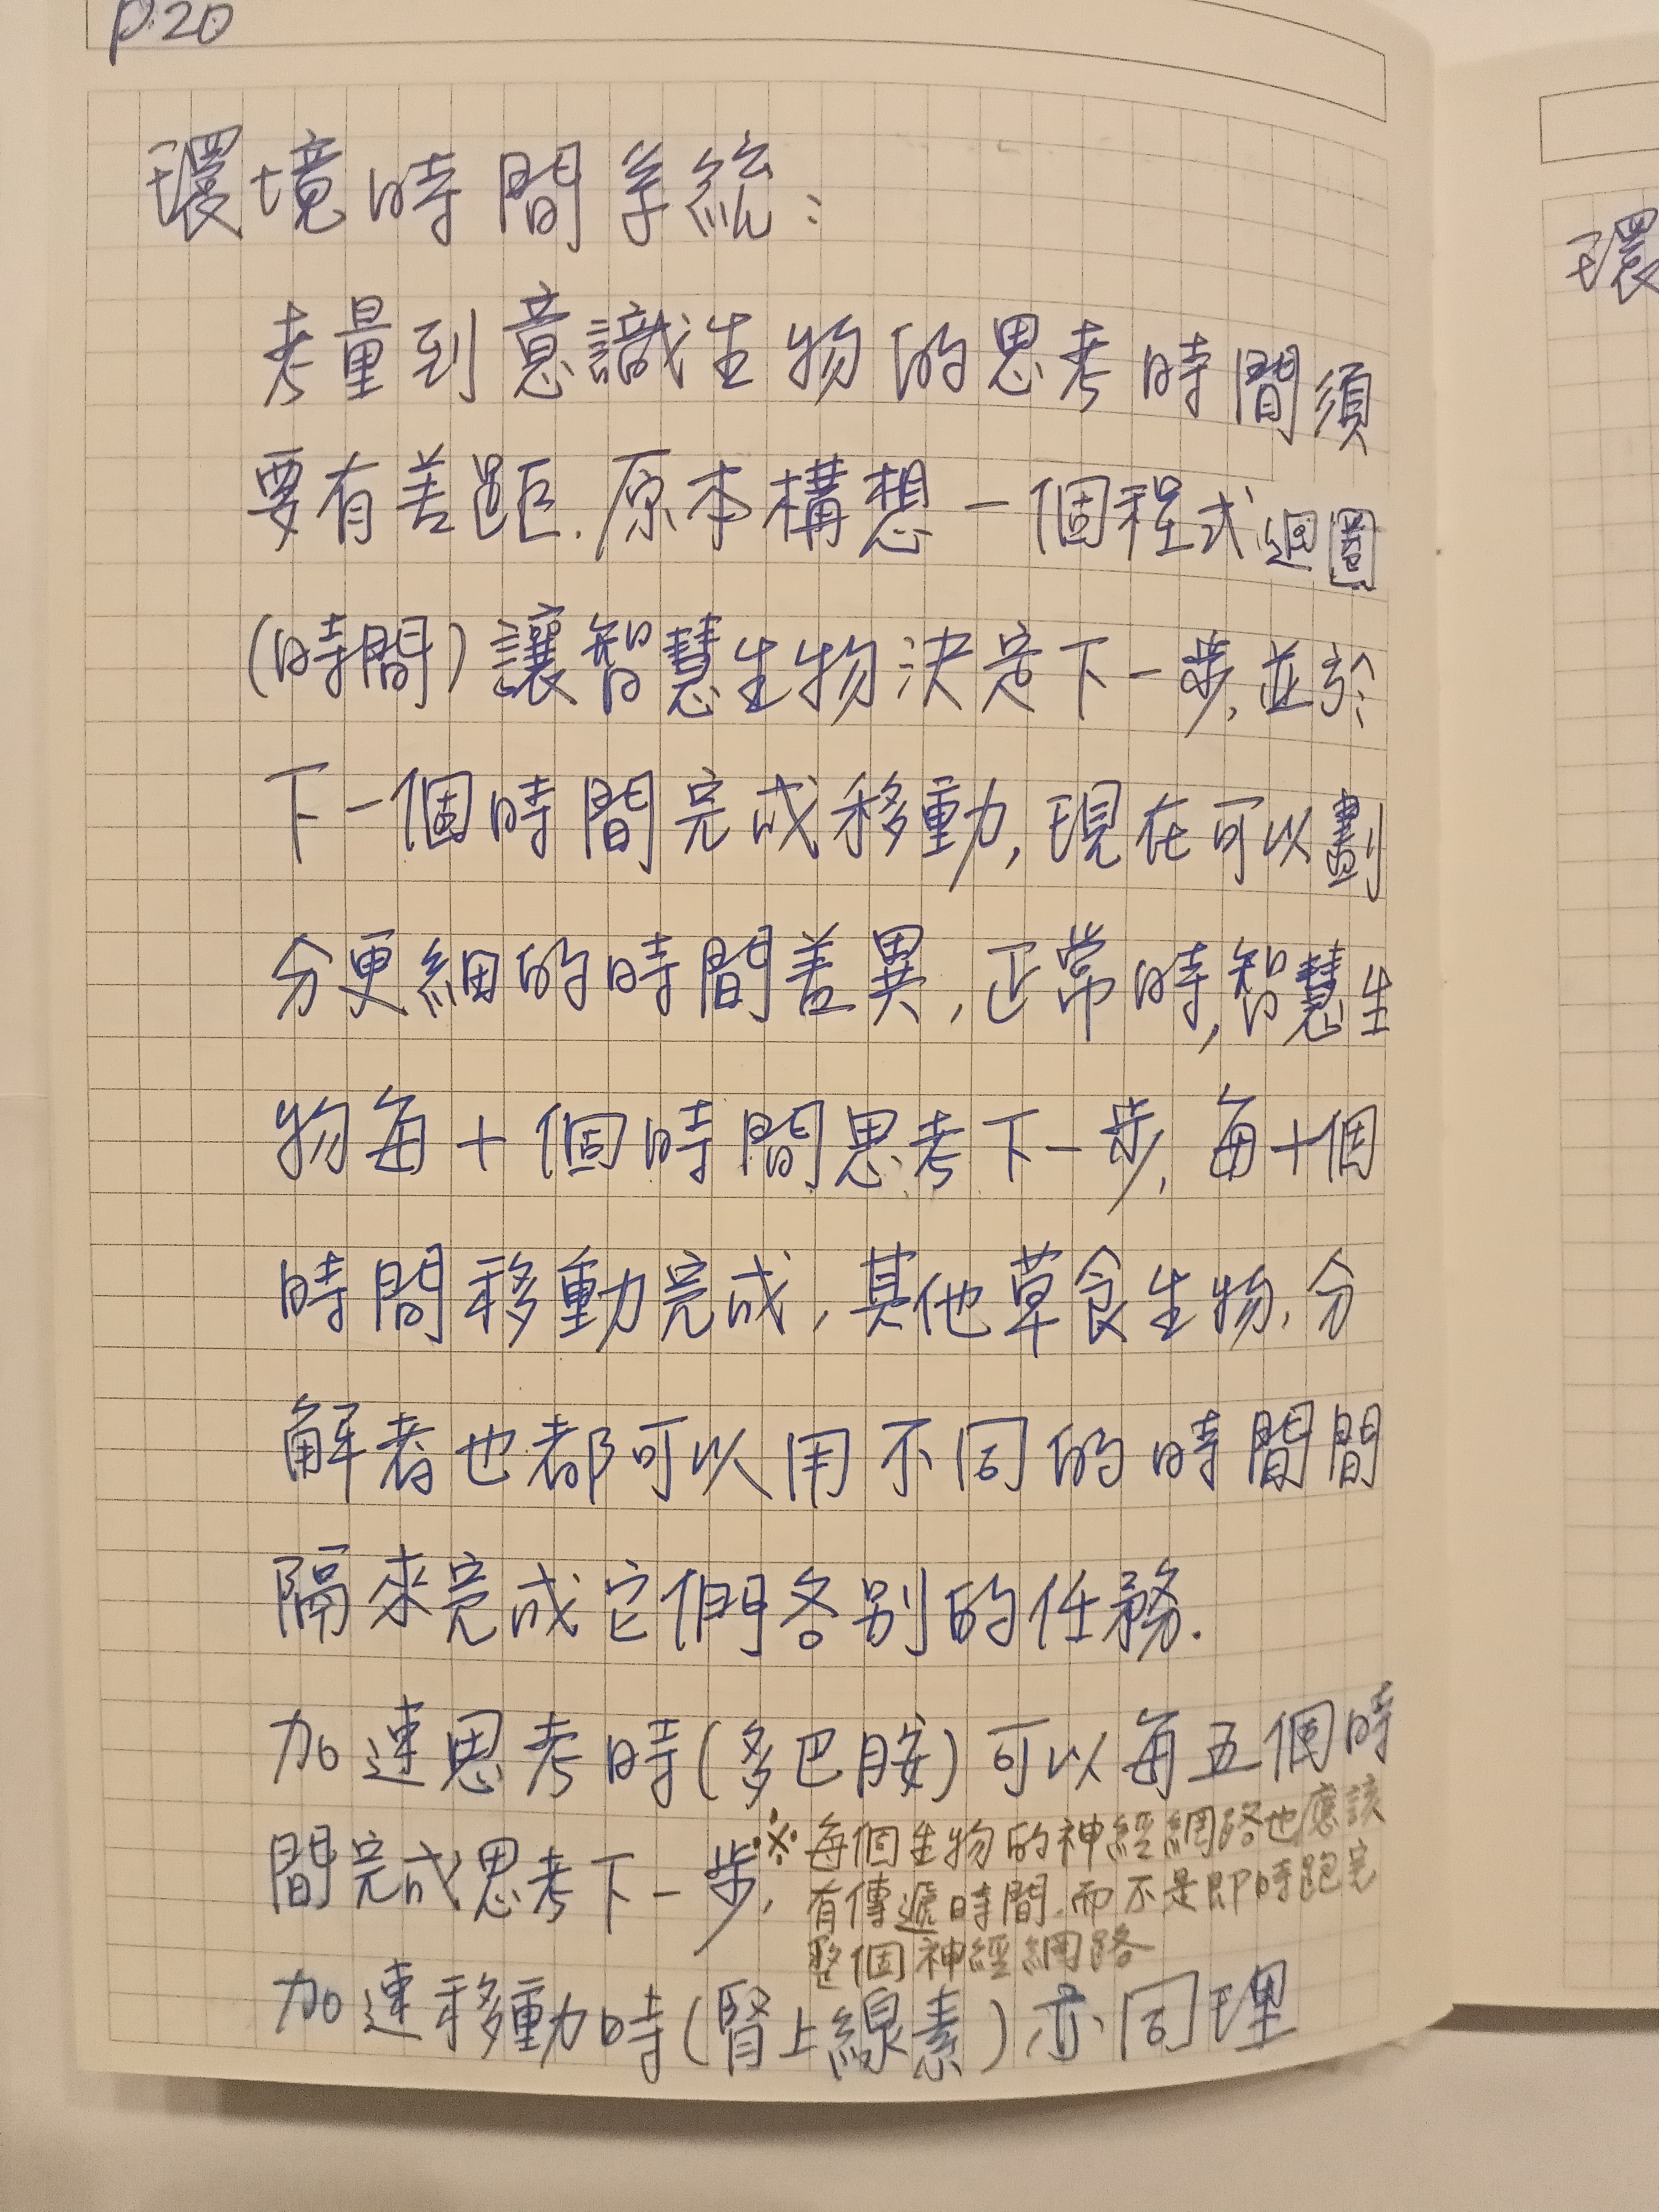 p.20
環境時間系統：
考量到意識生物的思考時間須
要有差距．原本構想一個程式迴圈
(時間)讓智慧生物決定下一步,並於
下一個時間完成移動,現在可以劃
分更細的時間差異,正常時,智慧生
物每十個時間思考下一步,每十個
時間移動完成,其他草食生物,分
解者也都可以用不同的時間間
隔來完成它們各別的任務.
加速思考時(多巴胺)可以每五個時
間完成思考下一步,
※每個生物的神經網路也應該
有傳遞時間.而不是即時跑完
整個神經網路
加速移動時(腎上線素)亦同理
環